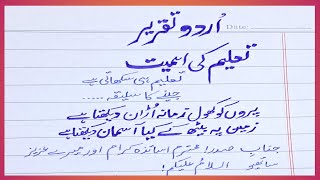 اُردو تقریر
Date:
تعلیم کی اہمیت
تعلیم ہی سکھاتی ہے
جینے کا سلیقہ .....
پروں کو کھول زمانہ اُڑان دیکھتا ہے
زمین پہ بیٹھ کے کیا آسمان دیکھتا ہے
جناب صدر! محترم اساتذہ کرام اور میرے عزیز
ساتھیو السلامُ علیکم!